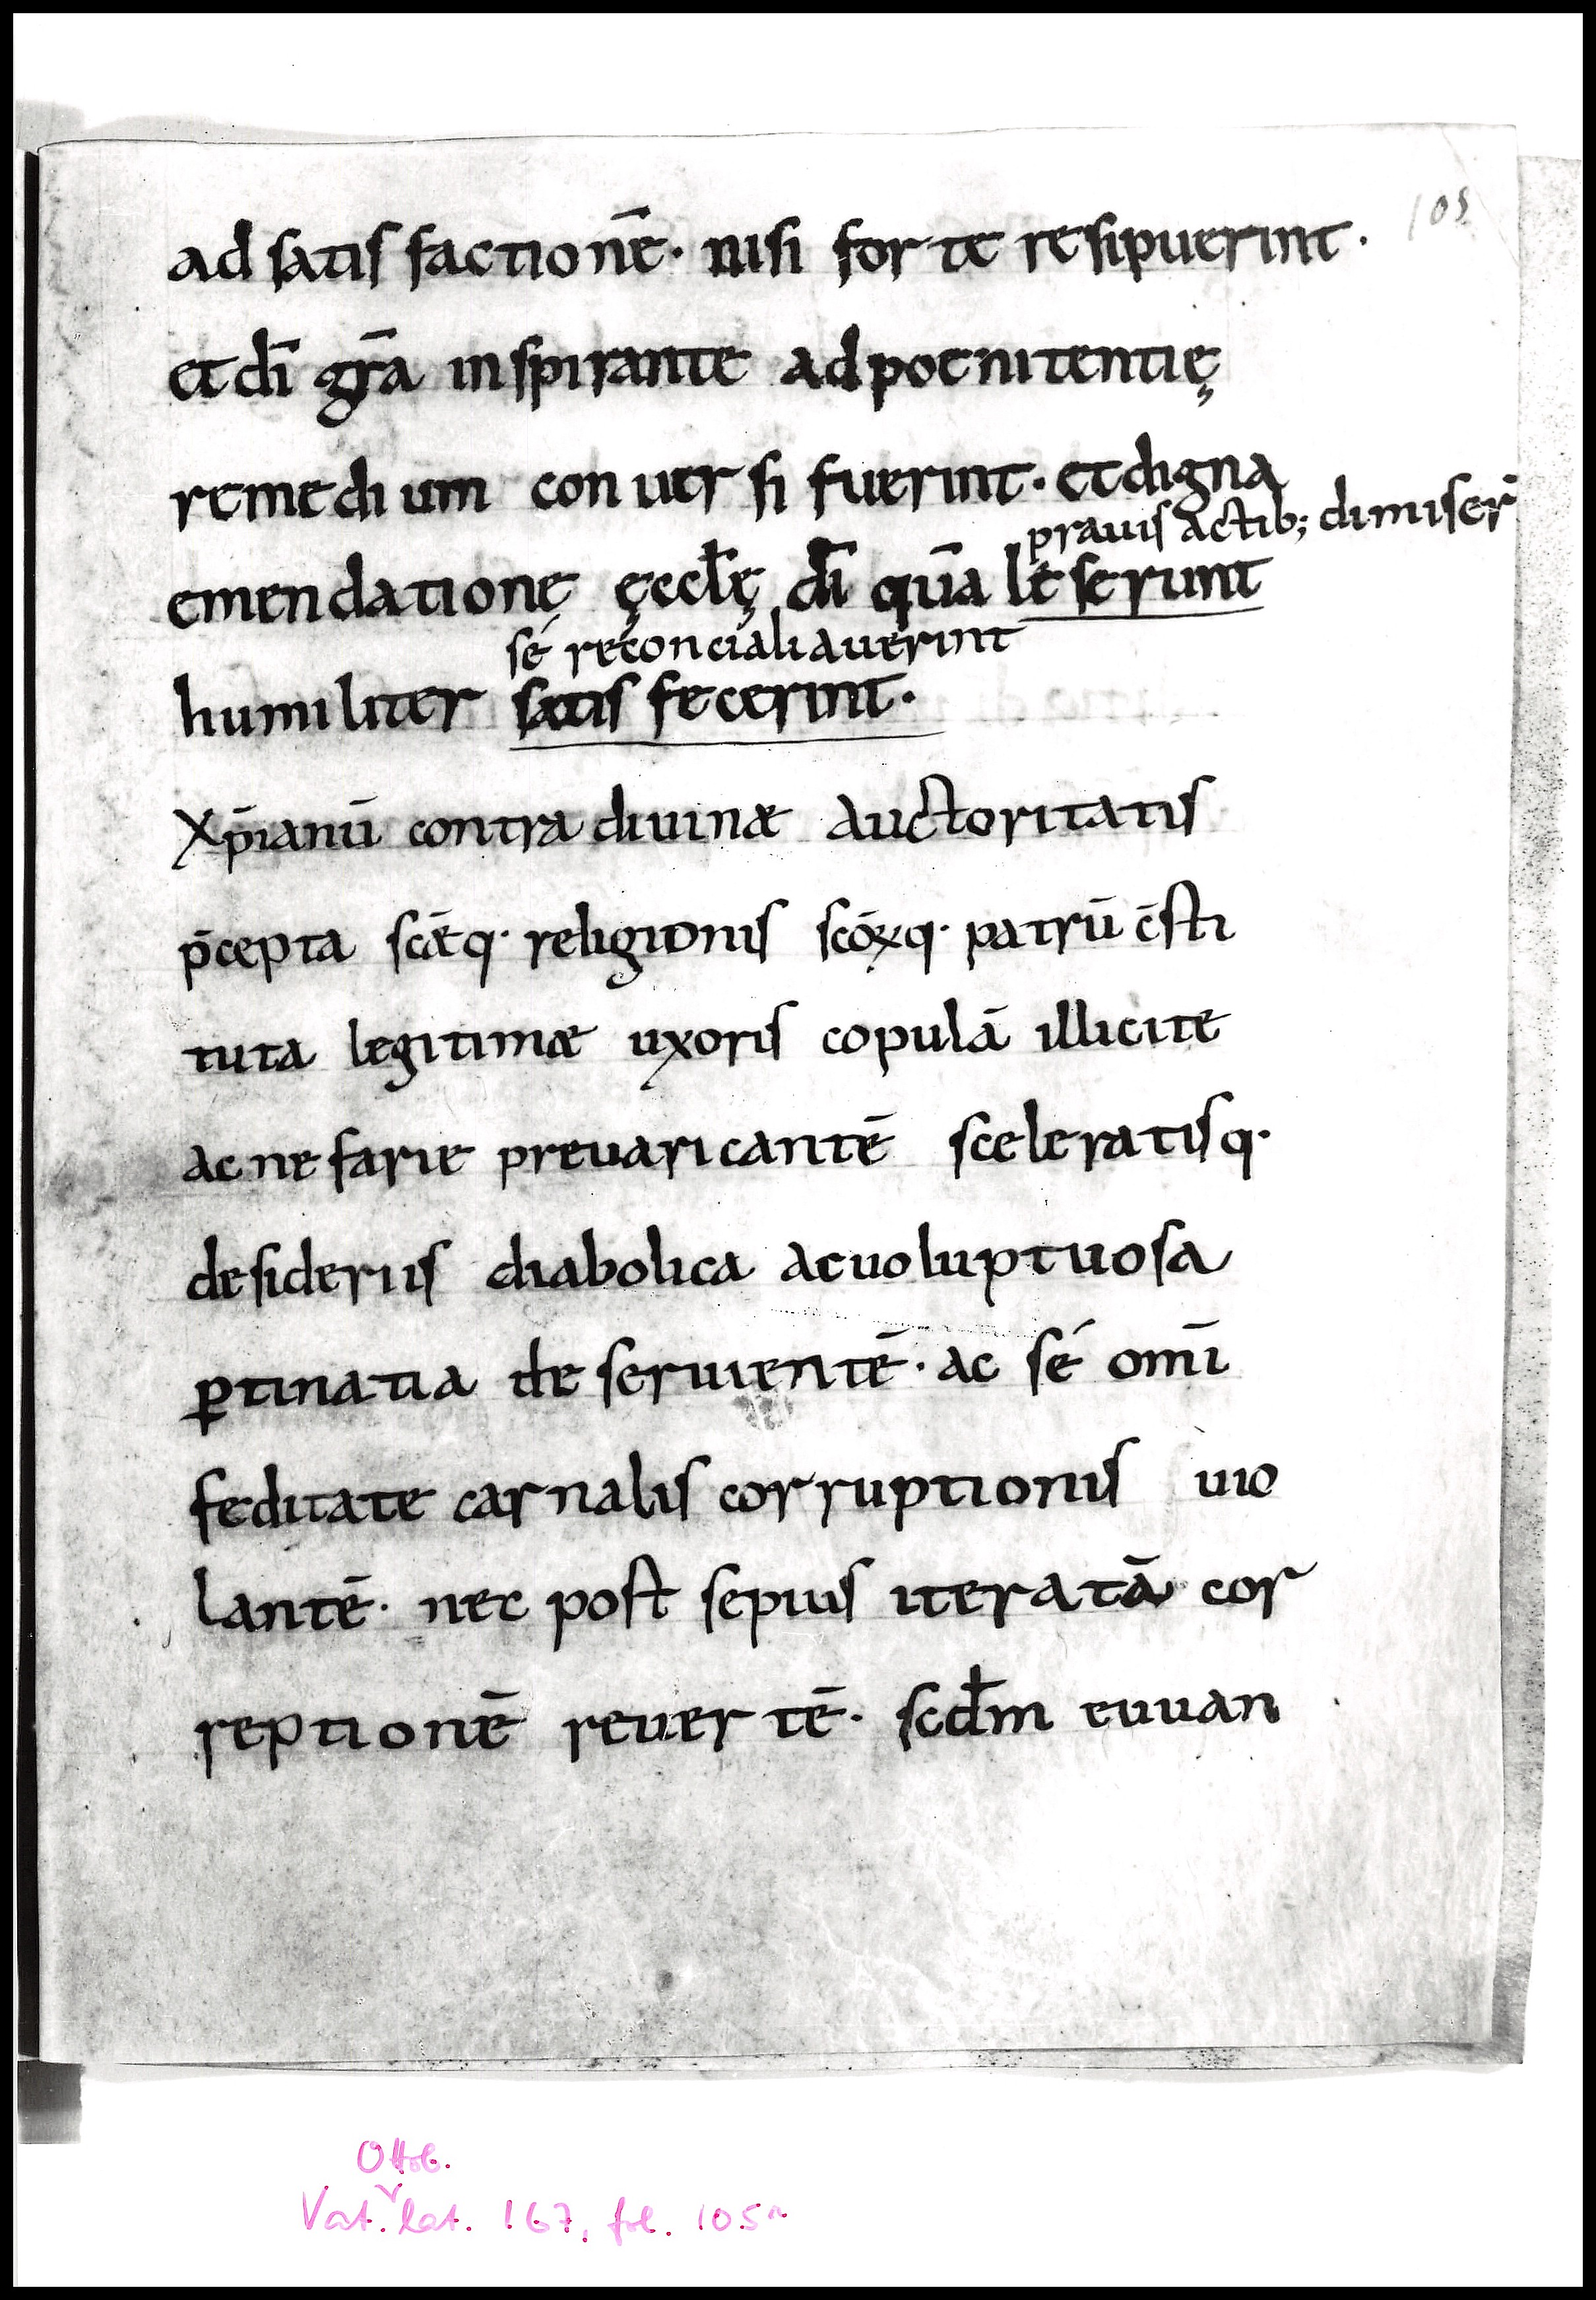 105
ad satis factionē· nisi forte resipuerint·
et dī grā inspirante ad poenitentię
remedium conuersi fuerint· et digna
prauis actib; dimiser̄
emendationę ęccłę dī quā leserunt
sé reconcialiauerint
humiliter satis fecerint·
Xp̄ianū contra diuinæ auctoritatis
p̄cepta scǣq· religionis scōꝝq· patrū c̄sti
tuta legitimæ uxoris copulā illicite
ac nefarie preuaricantē sceleratisq·
desideriis diabolica ac uoluptuosa
ꝑtinatia deseruientē· ac sé om̄i
feditate carnalis corruptionis uio
lantē· nec post sepius iteratā cor
reptionē reuertē· scđm euuan
Ottob.
Vat. lat. 167, fol. 105r